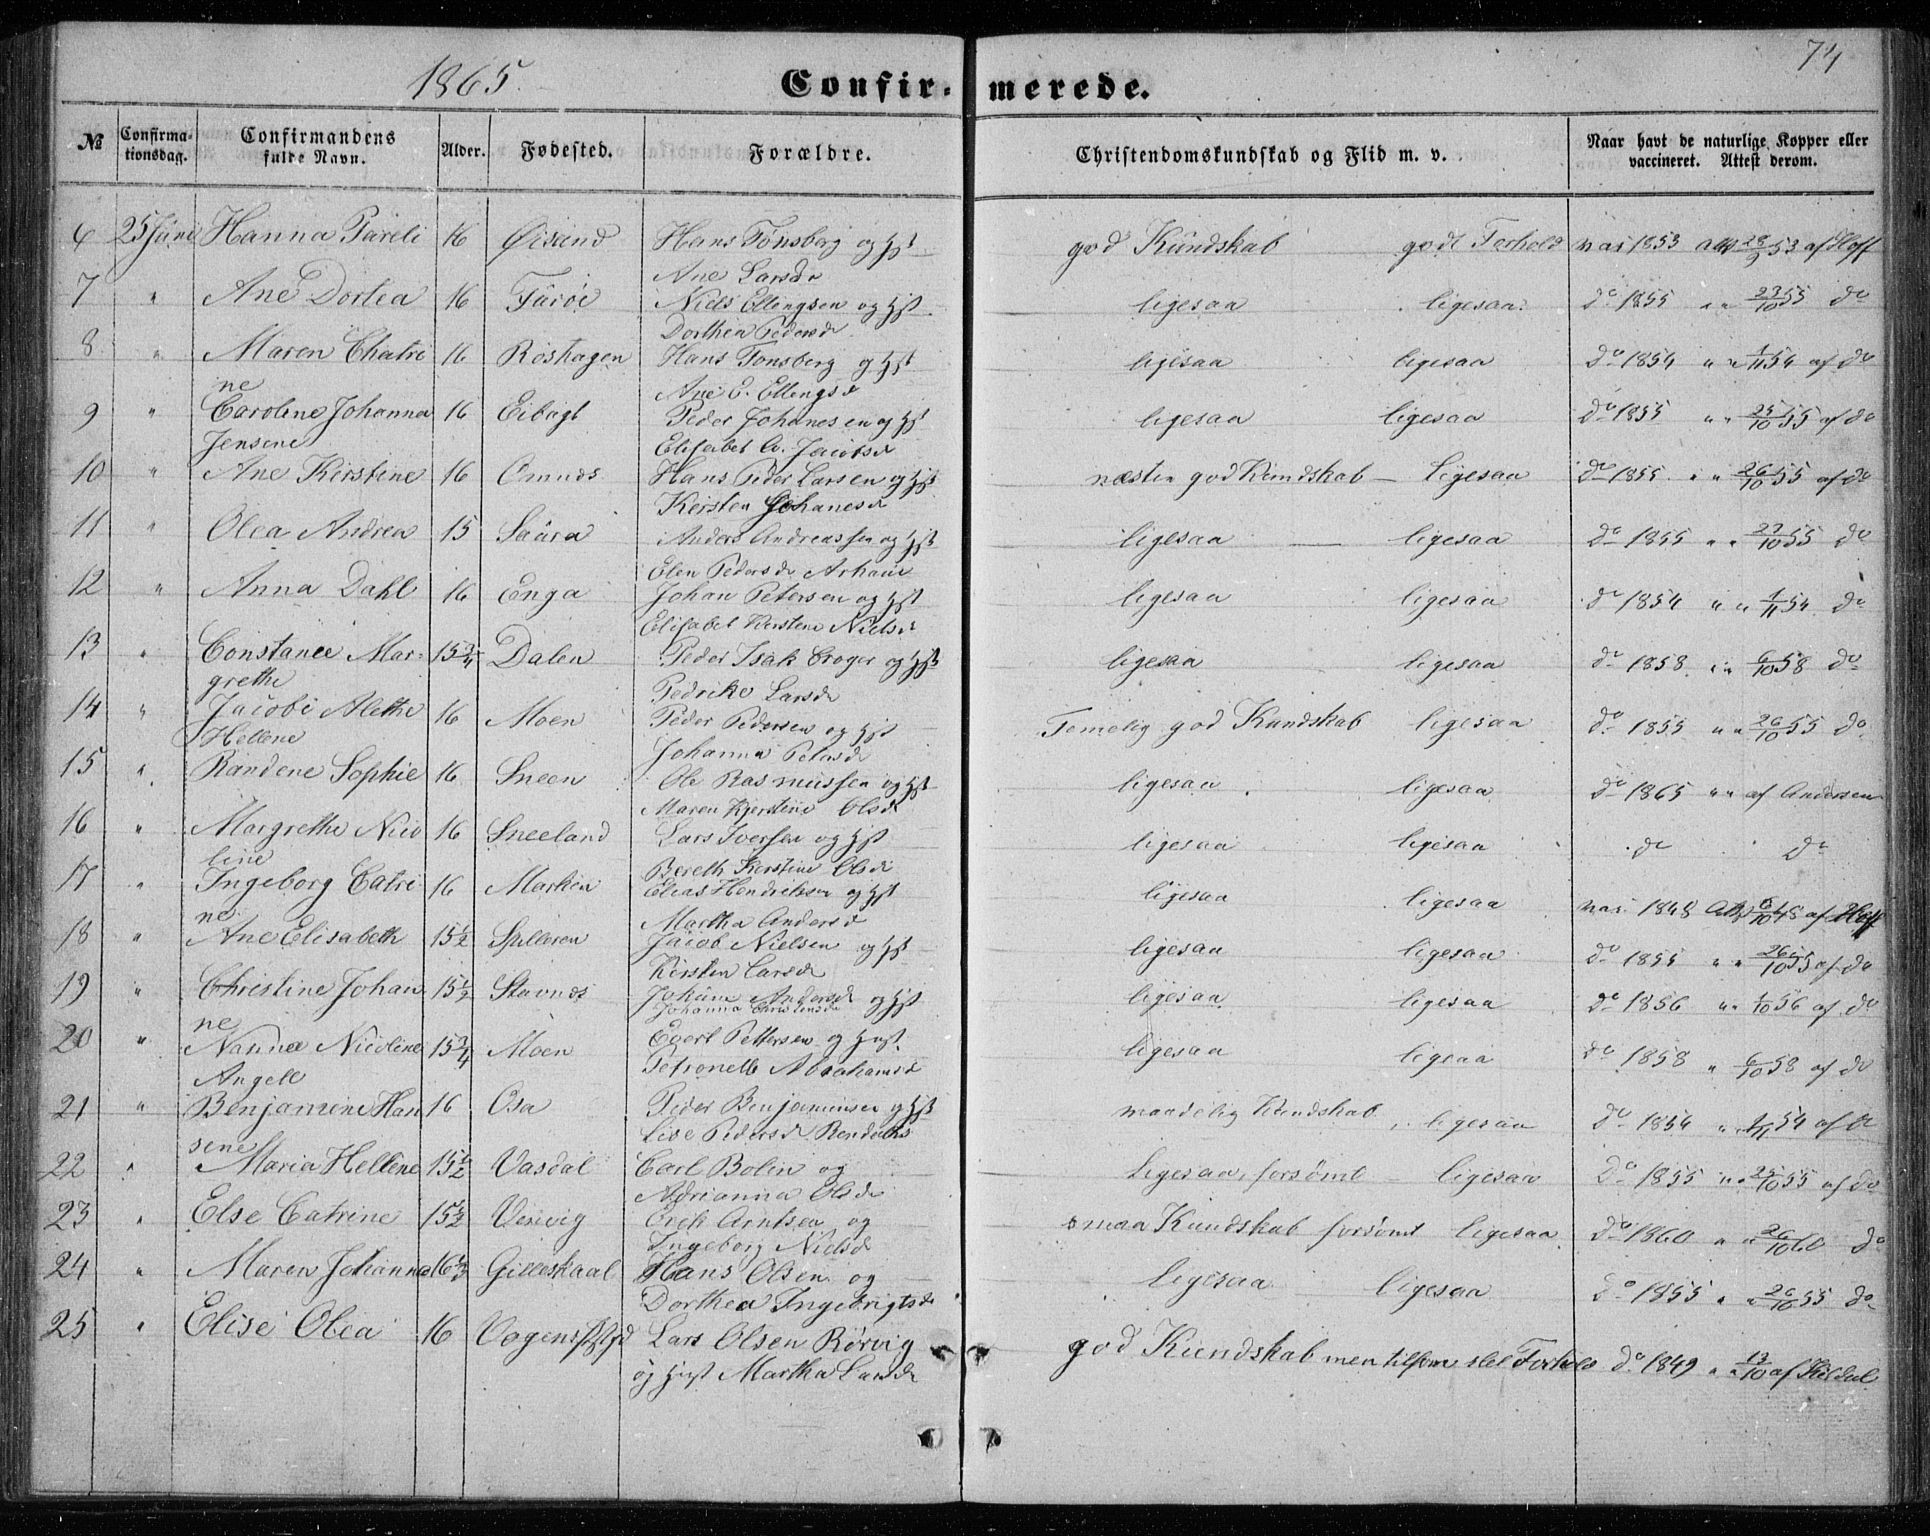 1865.
Confirmerede.
74
№
Confirmationsdag.
Confirmandens fulde Navn.
Alder.
Fødested.
Forældre.
Christendomskundskab og Flid m. v.
Naar havt de naturlige Kopper eller vaccineret. Attest derom.
6 25 Juni Hanna Pareli 16 Øisund Hans Tønsberg og Hst god Kundskab godt Forhold vac 1853 Att 28/9 53 af Hoff
Ane Larsd
7 " Ane Dortea 16 Færøe Niels Ellingsen og Hst ligesaa ligesaa do 1855 " " 23/10 55 do
Dorthea Pedersd
8 " Maren Chatri 16 Røshagen Hans Tønsberg og Hst ligesaa ligesaa do 1854 " " 1/11 54 af do
ne Ane E. Ellingsd
9 " Caroline Johanna 16 Eibagt Peder Johanesen og Hst ligesaa ligesaa do 1855 " " 25/10 55 af do
Jensene Elisabet A. Jacobsd
10 " Ane Kirstine 16 Omnæs Hans Peder Larsen og Hst næsten god Kundskab ligesaa do 1855 " " 26/10 55 af do
Kersten Johanesd
11 " Olea Andrea 15 Saura Anders Andreassen og Hst ligesaa ligesaa do 1855 " " 27/10 55 do
Elen Pedersd
12 " Anna Dahl 16 Enga Johan Petersen og Hst ligesaa ligesaa do 1854 " " 1/11 54 do
Elisabet Kerstene Nielsd
13 " Constance Mar- 15 3/4 Dalen Peder Isak Croger og Hst ligesaa ligesaa do 1858 " " 6/10 58 do
grethe Pedrike Larsd
14 " Jacobi Alethe 16 Moen Peder Pedersen og Hst Temelig god Kundskab ligesaa do 1855 " " 26/10 55 do
Hellene Johanna Petersd
15 " Randene Sophie 16 Sneen Ole Rasmussen og Hst ligesaa ligesaa do 1865 " " af Andersen
Maren Kjerstine Olsd
16 " Margrethe Nico 16 Sneeland Lars Iversen og Hst ligesaa ligesaa do do
line Bereth Kerstine Olsd
17 " Ingeborg Catri 16 Marken Elias Hendriksen og Hst ligesaa ligesaa vac. 1848 Att 6/10 48 af Hoff
ne Martha Andersd
18 " Ane Elisabeth 15 1/2 Spilleren Jacob Nielsen og Hst ligesaa ligesaa do 1855 " " 26/10 55 af do
Kirsten Larsd
19 " Christine Johan 15 1/2 Stavnes Johan Andersd og Hst ligesaa ligesaa do 1856 " " 1/10 56 af do
ne Johanna Christensd
20 " Nanna Nicoline 15 3/4 Moen Evert Pettersen og Hust. ligesaa ligesaa do 1858 " 6/10 58 af do
Angell Petronelle Abrahamsd
21 " Benjamine Han 16 Osa Peder Benjaminsen og Hst maadelig Kundskab ligesaa do 1854 " 1/11 54 af do
sene Lise Pedersd
22 " Maria Hellene 15 1/2 Vasdal Carl Bolin og Ligesaa, forsømt ligesaa do 1855 " " 25/10 55 af do
Adrianna Olsd
23 " Else Catrine 15 1/2 Versvig Erik Arntsen og smaa Kundskab forsømt ligesaa do 1860 " " 26/10 60 do
Ingeborg Nielsd
24 " Maren Johanna 16 1/2 Gilleskaal Hans Olsen og ligesaa ligesaa do 1855 " " 26/10 55 do
Dorthea Ingebrigtsd
25 " Elise Olea 16 Vogens Pstgd Lars Olsen Rørvig god Kundskab men slet Forhold do 1849 " " 13/10 af Hildal
og Hust Martha Larsd